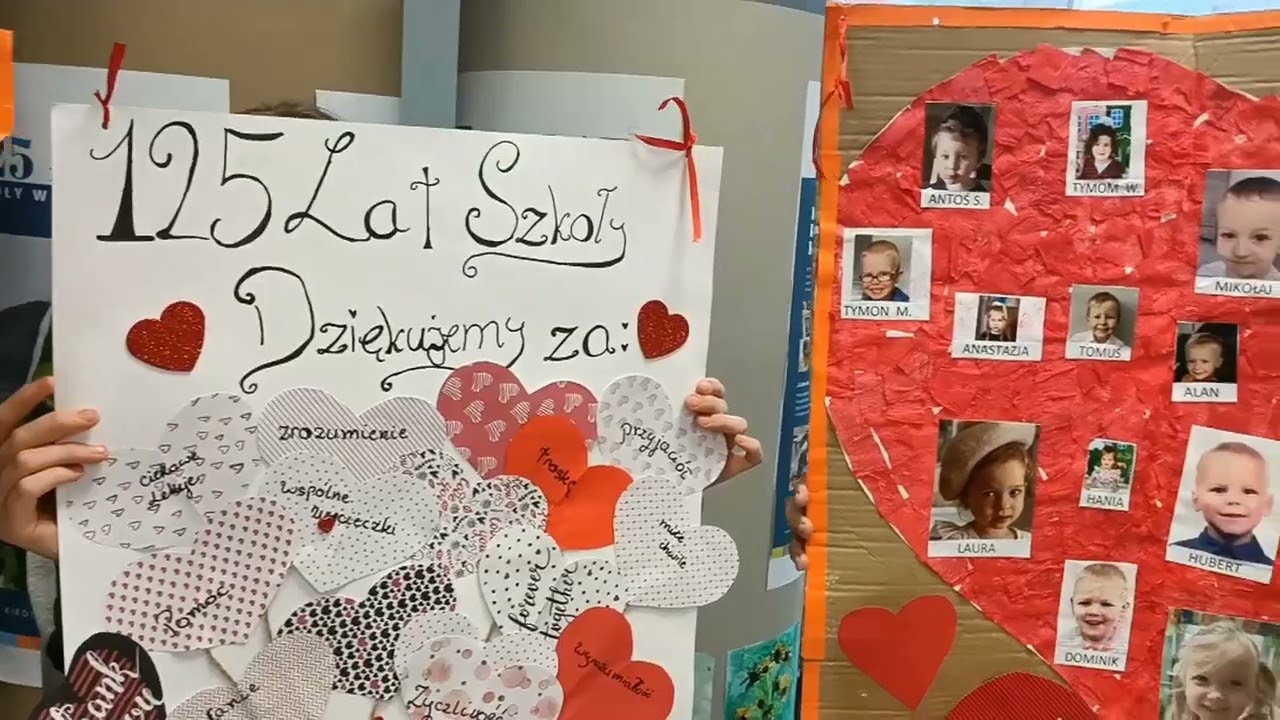 125 Lat Szkoły
Dziękujemy za:
zrozumienie
ciekawe
lekcje
wspólne
wycieczki
troskę
przyjaciół
miłe
chwile
Pomoc
forever
together
wyrozumiałość
Życzliwość
thank
you
ANTOŚ S.
TYMOM W.
MIKOŁAJ
TYMON M.
ANASTAZJA
TOMUŚ
ALAN
LAURA
HANIA
HUBERT
DOMINIK